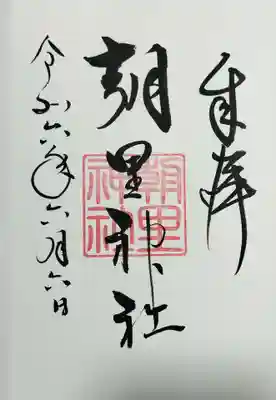 奉拝
朝里神社
朝里
神社
令和六年六月六日